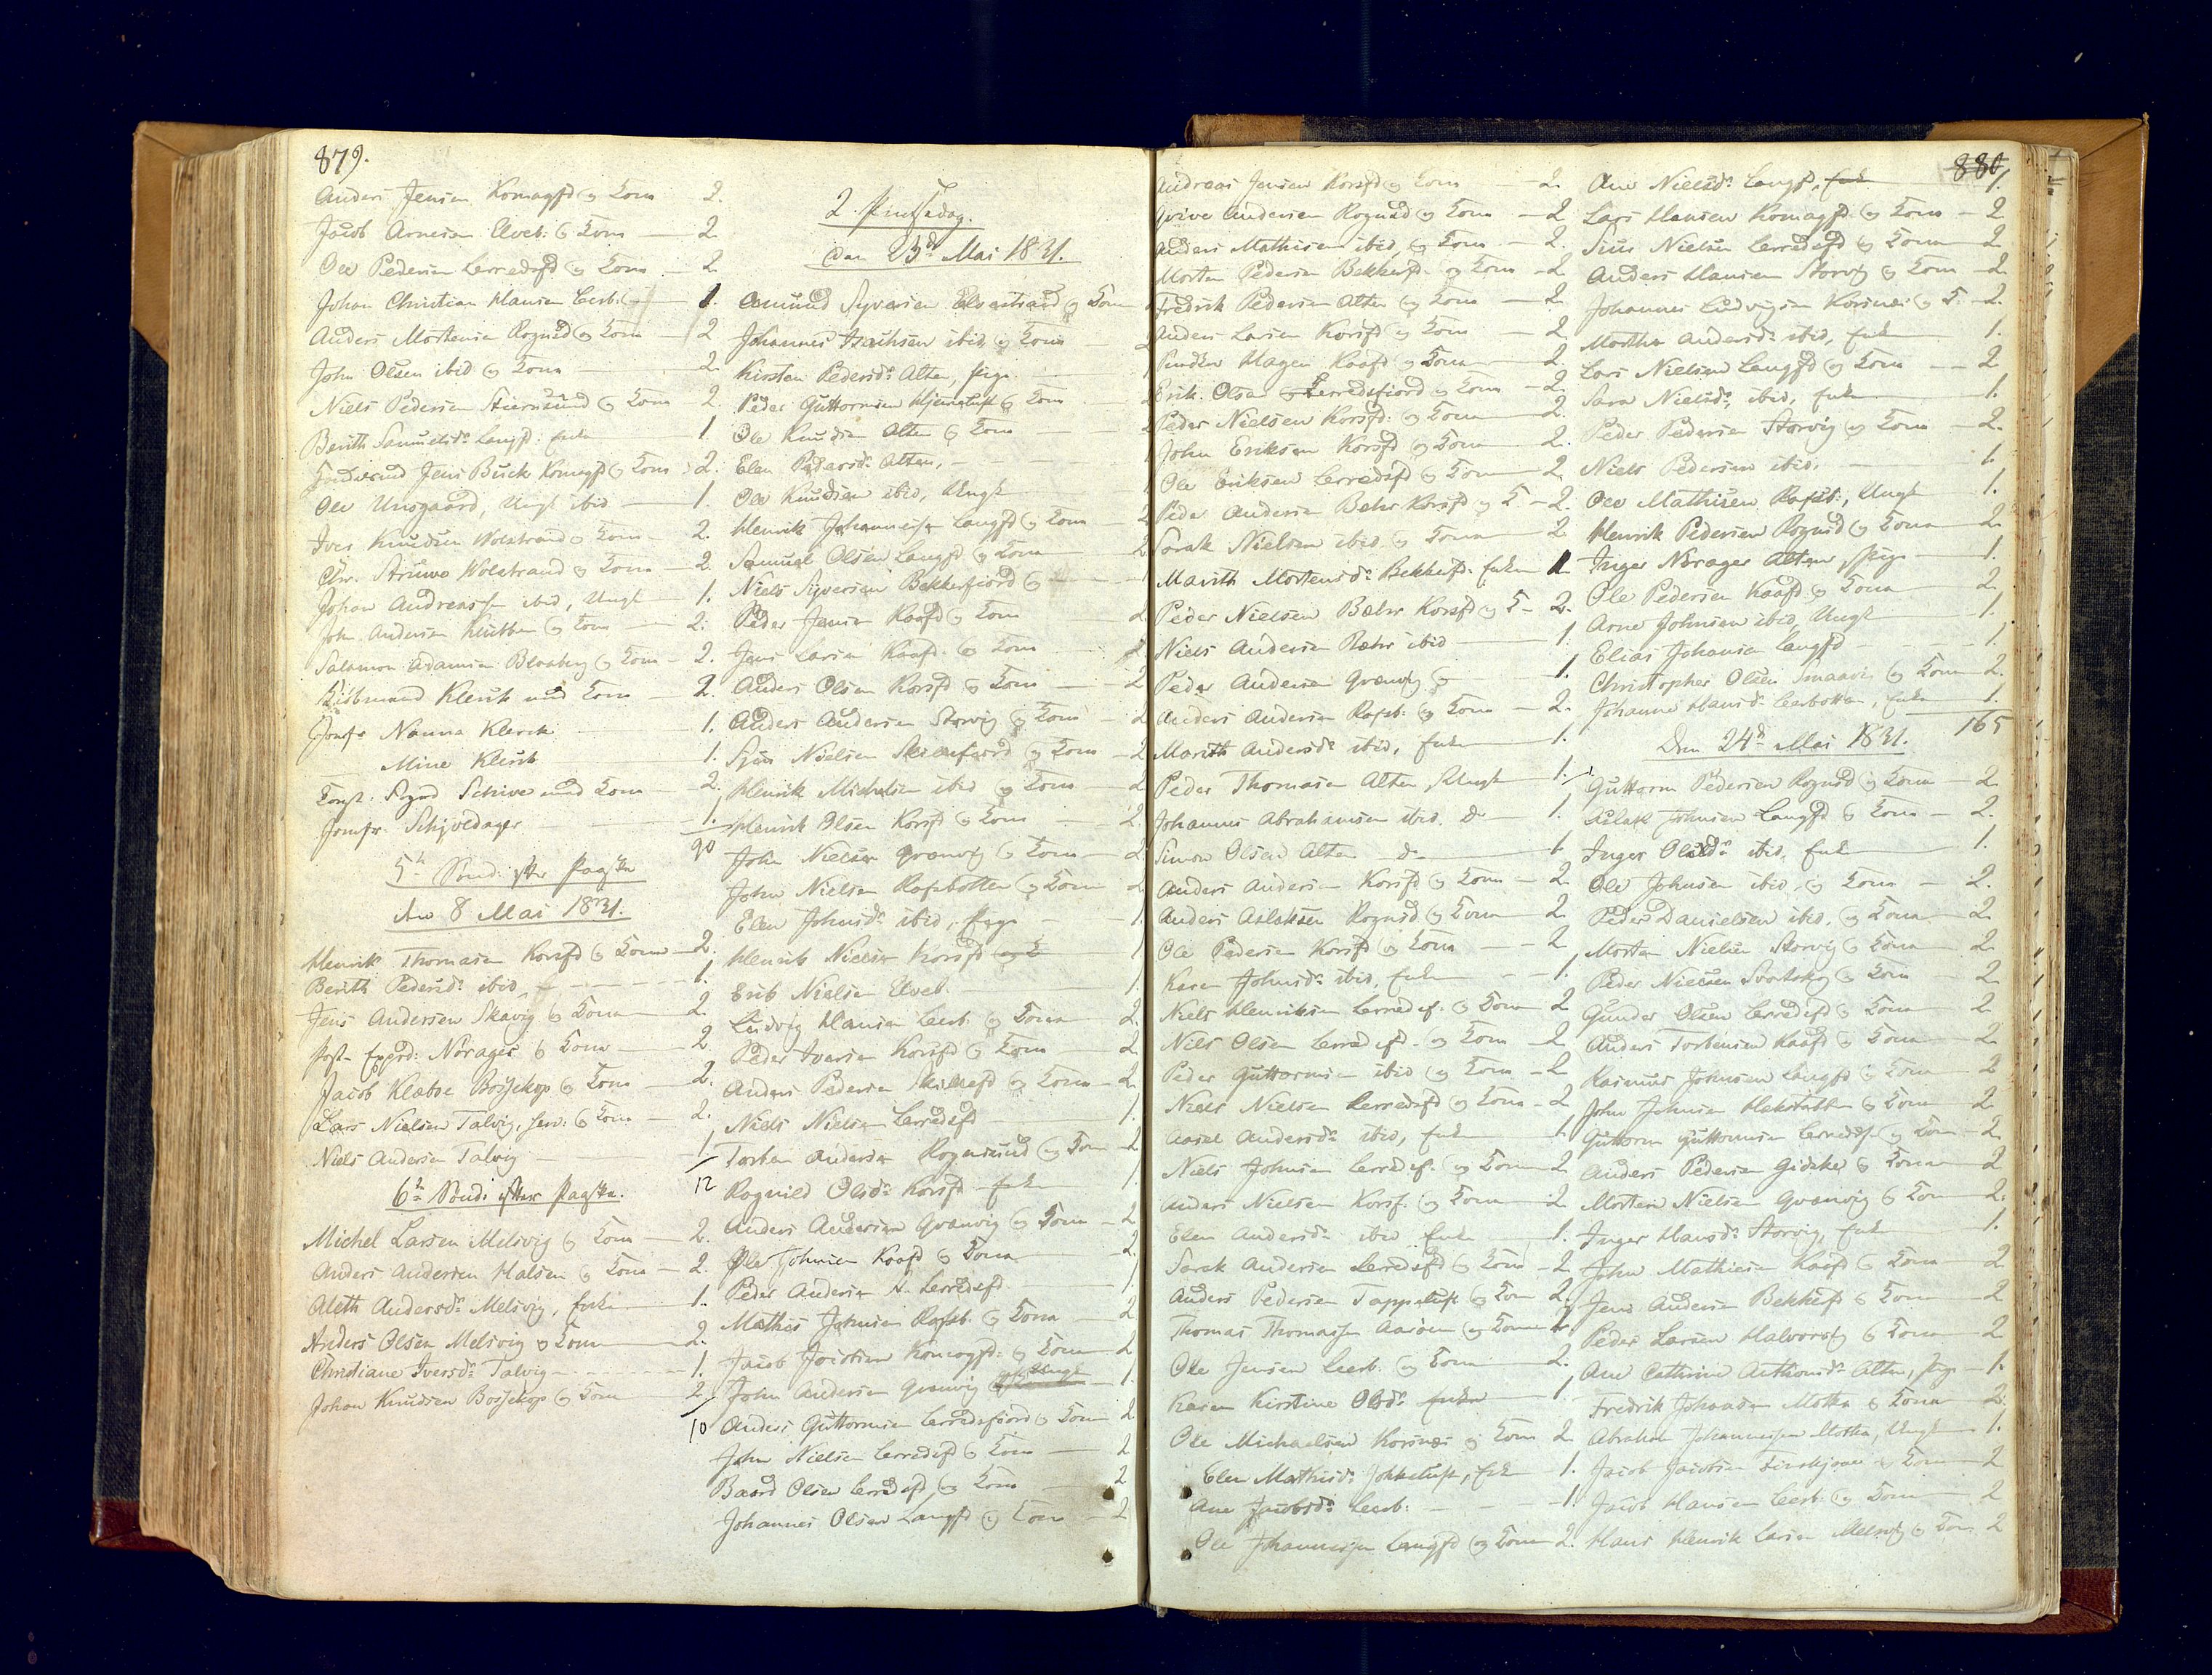 879.
Anders Jensen Komagfd og Kone 2.
Jacob Arnesen Elveb: og Kone 2
Ole Pedersen Lerredsfd og Kone 2
Johan Christian Hansen Leerb: 1.
Anders Mortensen Rognsd og Kone 2
John Olsen ibid og Kone 2.
Niels Pedersen Stiernsund og Kone 2.
Berith Samuelsdr Langfd: Enke 1.
Jens Buck Komagfd og Kone 2.
Ole Unsgaard, Ungk ibid 1.
Iver Knudsen Wolstrand og Kone 2.
Chr. Strüwe Wolstrand og Kone 2.
Johan Andreassen ibid, Ungk 1.
John Andersen Klubben og Kone 2.
Salamon Adamsen Blaaberg og Kone 2.
Kiøbmand Klerck med Kone 2.
Jomfr Nanna Klerck 1.
Mine Klerck 1.
Schive med Kone 2.
Jomfr. Schjeldager 1.
90
5te Sønd: efter Paaske
den 8 Mai 1831.
Henrik Thomasen Korsfd og Kone 2.
Berith Pedersdr ibid 1.
Jens Andersen Skavig og Kone 2
Post-Exped: Norager og Kone 2.
Jacob Klæboe Bossekop og Kone 2.
Lars Nielsen Talvig, sen: og Kone 2.
Niels Andersen Talvig 1
12
6te Sønd: efter Paaske.
Michel Larsen Melsvig og Kone 2.
Anders Andersen Halsen og Kone 2.
Aleth Andersdr Melsvig, Enke 1.
Anders Olsen Melsvig og Kone 2.
Christiane Iversdr Talvig 1.
Johan Knudsen Bossekop og Kone 2
10
2. Pintsedag.
den 23de Mai 1831.
Amund Syversen Elvestrand og Kone
Johannes Isachsen ibid og Kone 2
Kirsten Pedersdr Alten, Pige 1
Peder Guttormsen Hjemeluft og Kone 2
Ole Knudsen Alten og Kone 2
Elen Pedersdr Alten, 1
Ole Knudsen ibid, Ungk 1
Henrik Johannesen Langfd og Kone 2
Samuel Olsen Langfd og Kone 2
Niels Syversen Bekkerfiord og 1
Peder Jensen Kaafd og Kone 2
Jens Larsen Kaafd. og Kone 2
Anders Olsen Korsfd og Kone 2
Anders Andersen Storvig og Kone 2
Siur Nielsen Skillefiord og Kone 2
Henrik Michelsen ibid og Kone 2
Henrik Olsen Korsfd og Kone 2.
John Nielsen Qvænvig og Kone 2
John Nielsen Rafsbotten og Kone 2
Elen Johnsdr ibid, Pige 1
Henrik Nielsen Korsfd og K 1
Erik Nielsen Elveb. 1
Ludvig Hansen Leerb. og Kone 2
Peder Iversen Korsfd og Kone 2
Anders Pedersen Skillefd og Kone 2.
Niels Nielsen Lerredsfd 1.
Torsten Andersen Rognsund og Kone 2
Rognild Olsdr Korsfd Enke 1.
Anders Andersen Qvænvig og Kone 2
Ole Johnsen Kaafd og Kone 2.
Peder Andersen N. Lerredsfd. 1
Mathis Johnsen Rafsb. og Kone 2
Jacob Jacobsen Komagfd: og Kone 2
John Andersen Qvænvig Ungk 1.
Anders Guttormsen Lerredsfiord og Kone 2
John Nielsen Lerredsfd og Kone 2
Baard Olsen Lerredsfd og Kone 2
Johannes Olsen Langfd og Kone 2
880
Andreas Jensen Korsfd og Kone 2
Andersen Rognsd og Kone 2
Anders Mathisen ibid, og Kone 2.
Morten Pedersen Bekkerfd. og Kone 2
Fredrik Pedersen Alten og Kone 2
Anders Larsen Korsfd og Kone 2
Hagen Kaafd og Kone 2
Erik Olsen Lerredsfiord og Kone 2
Peder Nielsen Korsfd: og Kone 2.
John Eriksen Korsfd og Kone 2.
Ole Eriksen Lerredsfd og Kone 2
Peder Andersen Bæhr Korsfd og K. 2.
Sarak Nielsen ibid og Kone 2
Marith Mortensdr Bekkerfd: Enke 1
Peder Nielsen Bæhr Korsfd og K 2.
Niels Andersen Bæhr ibid 1.
Peder Andersen Qvænvig og 1.
Anders Andersen Rafsb: og Kone 2.
Marith Andersdr ibid, Enke 1.
Peder Thomasen Alten, Ungk 1.
Johannes Abrahamsen ibid. do 1.
Simon Olsen Alten do 1
Anders Andersen Korsfd og Kone 2
Anders Aslaksen Rognsd og Kone 2
Ole Pedersen Korsfd og Kone 2
Karen Johnsdr ibid, Enke 1.
Niels Henriksen Lerredsf. og Kone 2
Nils Olsen Lerredsfd. og Kone 2
Peder Guttormsen ibid og Kone 2
Niels Nielsen Lerredsfd og Kone 2
Andersdr ibid, Enke 1
Niels Johnsen Lerredsf. og Kone 2
Anders Nielsen Korsf. og Kone 2
Elen Andersdr ibid Enke 1.
Sarak Andersen Lerredsfd og Kone 2
Anders Pedersen Tappeluft og Kone 2.
Thomas Thomassen Aarøen og Kone 2
Ole Jensen Leerb. og Kone 2.
Karen Kirstine Olsdr Enke 1.
Ole Michaelsen Korsnæs og Kone 2
Elen Mathisdr Jokkeluft, Enke 1.
Ane Jacobsdr Leerb: 1.
Ole Johannesen Langfd og Kone 2.
Ane Nielsdr Langfd, Enk. 1.
Lars Hansen Komagfd og Kone 2
Siur Nielsen Lerredsfd og Kone 2
Anders Hansen Storvig og Kone 2
Johannes Ludvigsen Korsnæs og K. 2.
Marthe Andersdr ibid, Enke 1.
Lars Nielsen Langfd og Kone 2
Sara Nielsdr ibid, Enke 1.
Peder Pedersen Storvig og Kone 2.
Niels Pedersen ibid. 1
Ole Mathisen Rafsb:, Ungk 1.
Henrik Pedersen Rognsd og Kone 2
Inger Norager Alten, Pige 1.
Ole Pedersen Kaafd og Kone 2
Arne Johnsen ibid, Ungk 1.
Elias Johansen Langfd 1.
Christopher Olsen og Kone 2.
Johanne Hansdr Leerbotten, Enke 1.
165
Den 24de Mai 1831.
Guttorm Pedersen Rognsd og Kone 2
Aslak Johnsen Langfd og Kone 2.
Inger Olsdr ibid, Enke 1.
Ole Johnsen ibid, og Kone 2.
Peder Danielsen ibid, og Kone 2
Morten Nielsen Storvig og Kone 2
Peder Nielsen og Kone 2
Gunder Olsen Lerredsfd og Kone 2
Anders Torstensen Kaafd og Kone 2
Rasmus Johnsen Langfd og Kone 2
John Johnsen Hakstabben og Kone 2
Guttorm Guttormsen Lerredsf og Kone 2
Anders Pedersen og Kone 2
Morten Nielsen Qvænvig og Kone 2.
Inger Hansdr Storvig, Enke 1.
John Mathiesen Kaafd og Kone 2
Jens Andersen Bekkerfd og Kone 2
Peder Larsen og Kone 2
Ane Cathrine Anthonsdr Alten, Pige 1.
Fredrik Johansen Motka og Kone 2.
Abraham Johannesen Motka, Ungk 1.
Jacob Jacobsen og Kone 2
Jacob Hansen Leerb. og Kone 2
Hans Henrik Larsen Melsvig og Kone 2